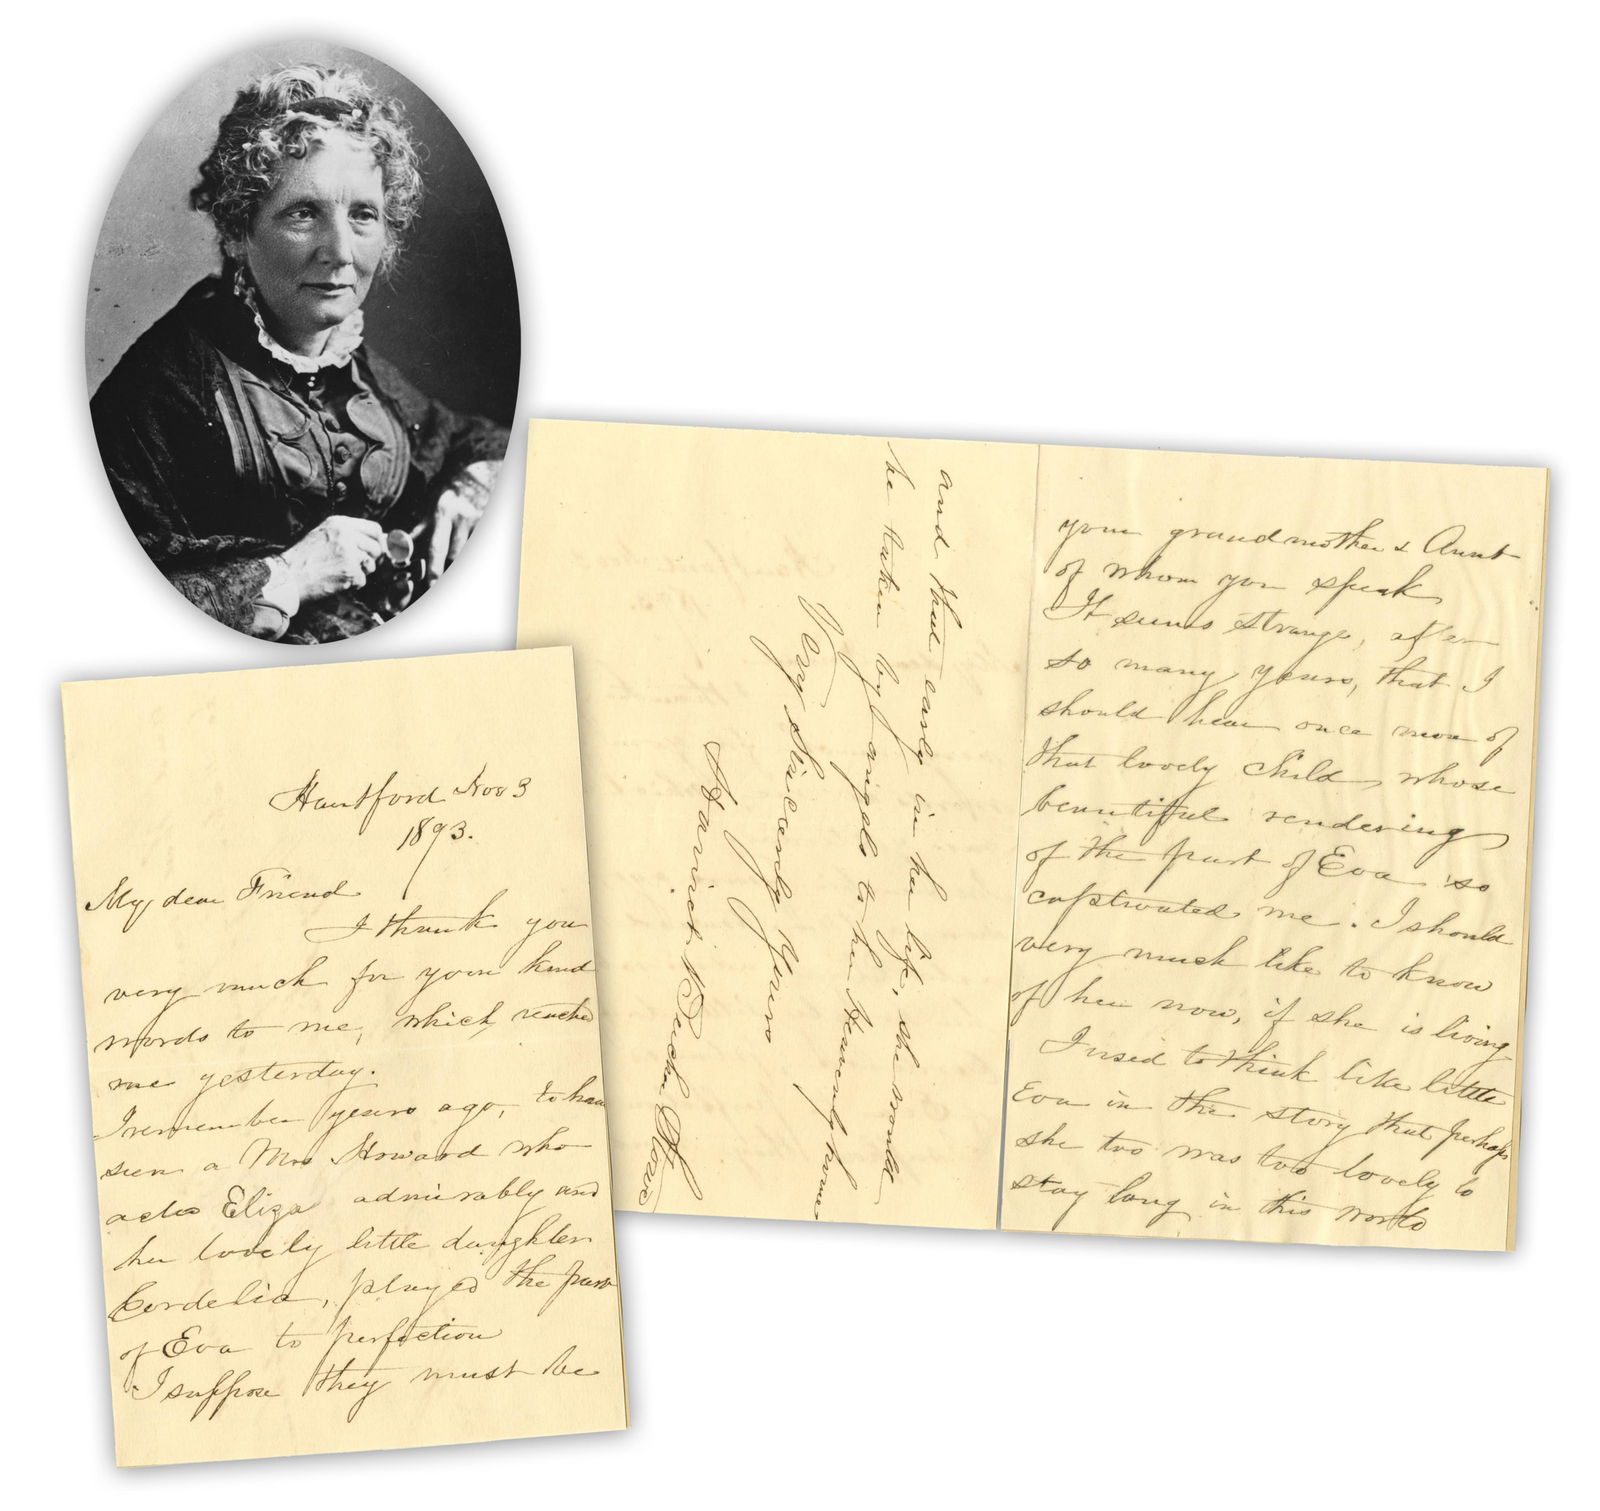 Hartford Nov 3
1893.
My dear Friend
I thank you
very much for your kind
words to me, which reached
me yesterday.
I remember years ago, to have
seen a Mrs Howard who
acted Eliza admirably and
her lovely little daughter
Cordelia, played the part
of Eva to perfection
I suppose they must be
your grandmother & Aunt
of whom you speak
It seems strange, after
so many years, that I
should hear once more of
that lovely child, whose
beautiful rendering
of the part of Eva so
captivated me. I should
very much like to know
of her now, if she is living
I used to think like little
Eva in the story that perhaps
she too was too lovely to
stay long in this world
and that early in her life, she would
be taken by angels to her Heavenly home
Very Sincerely Yours
Harriet Beecher Stowe